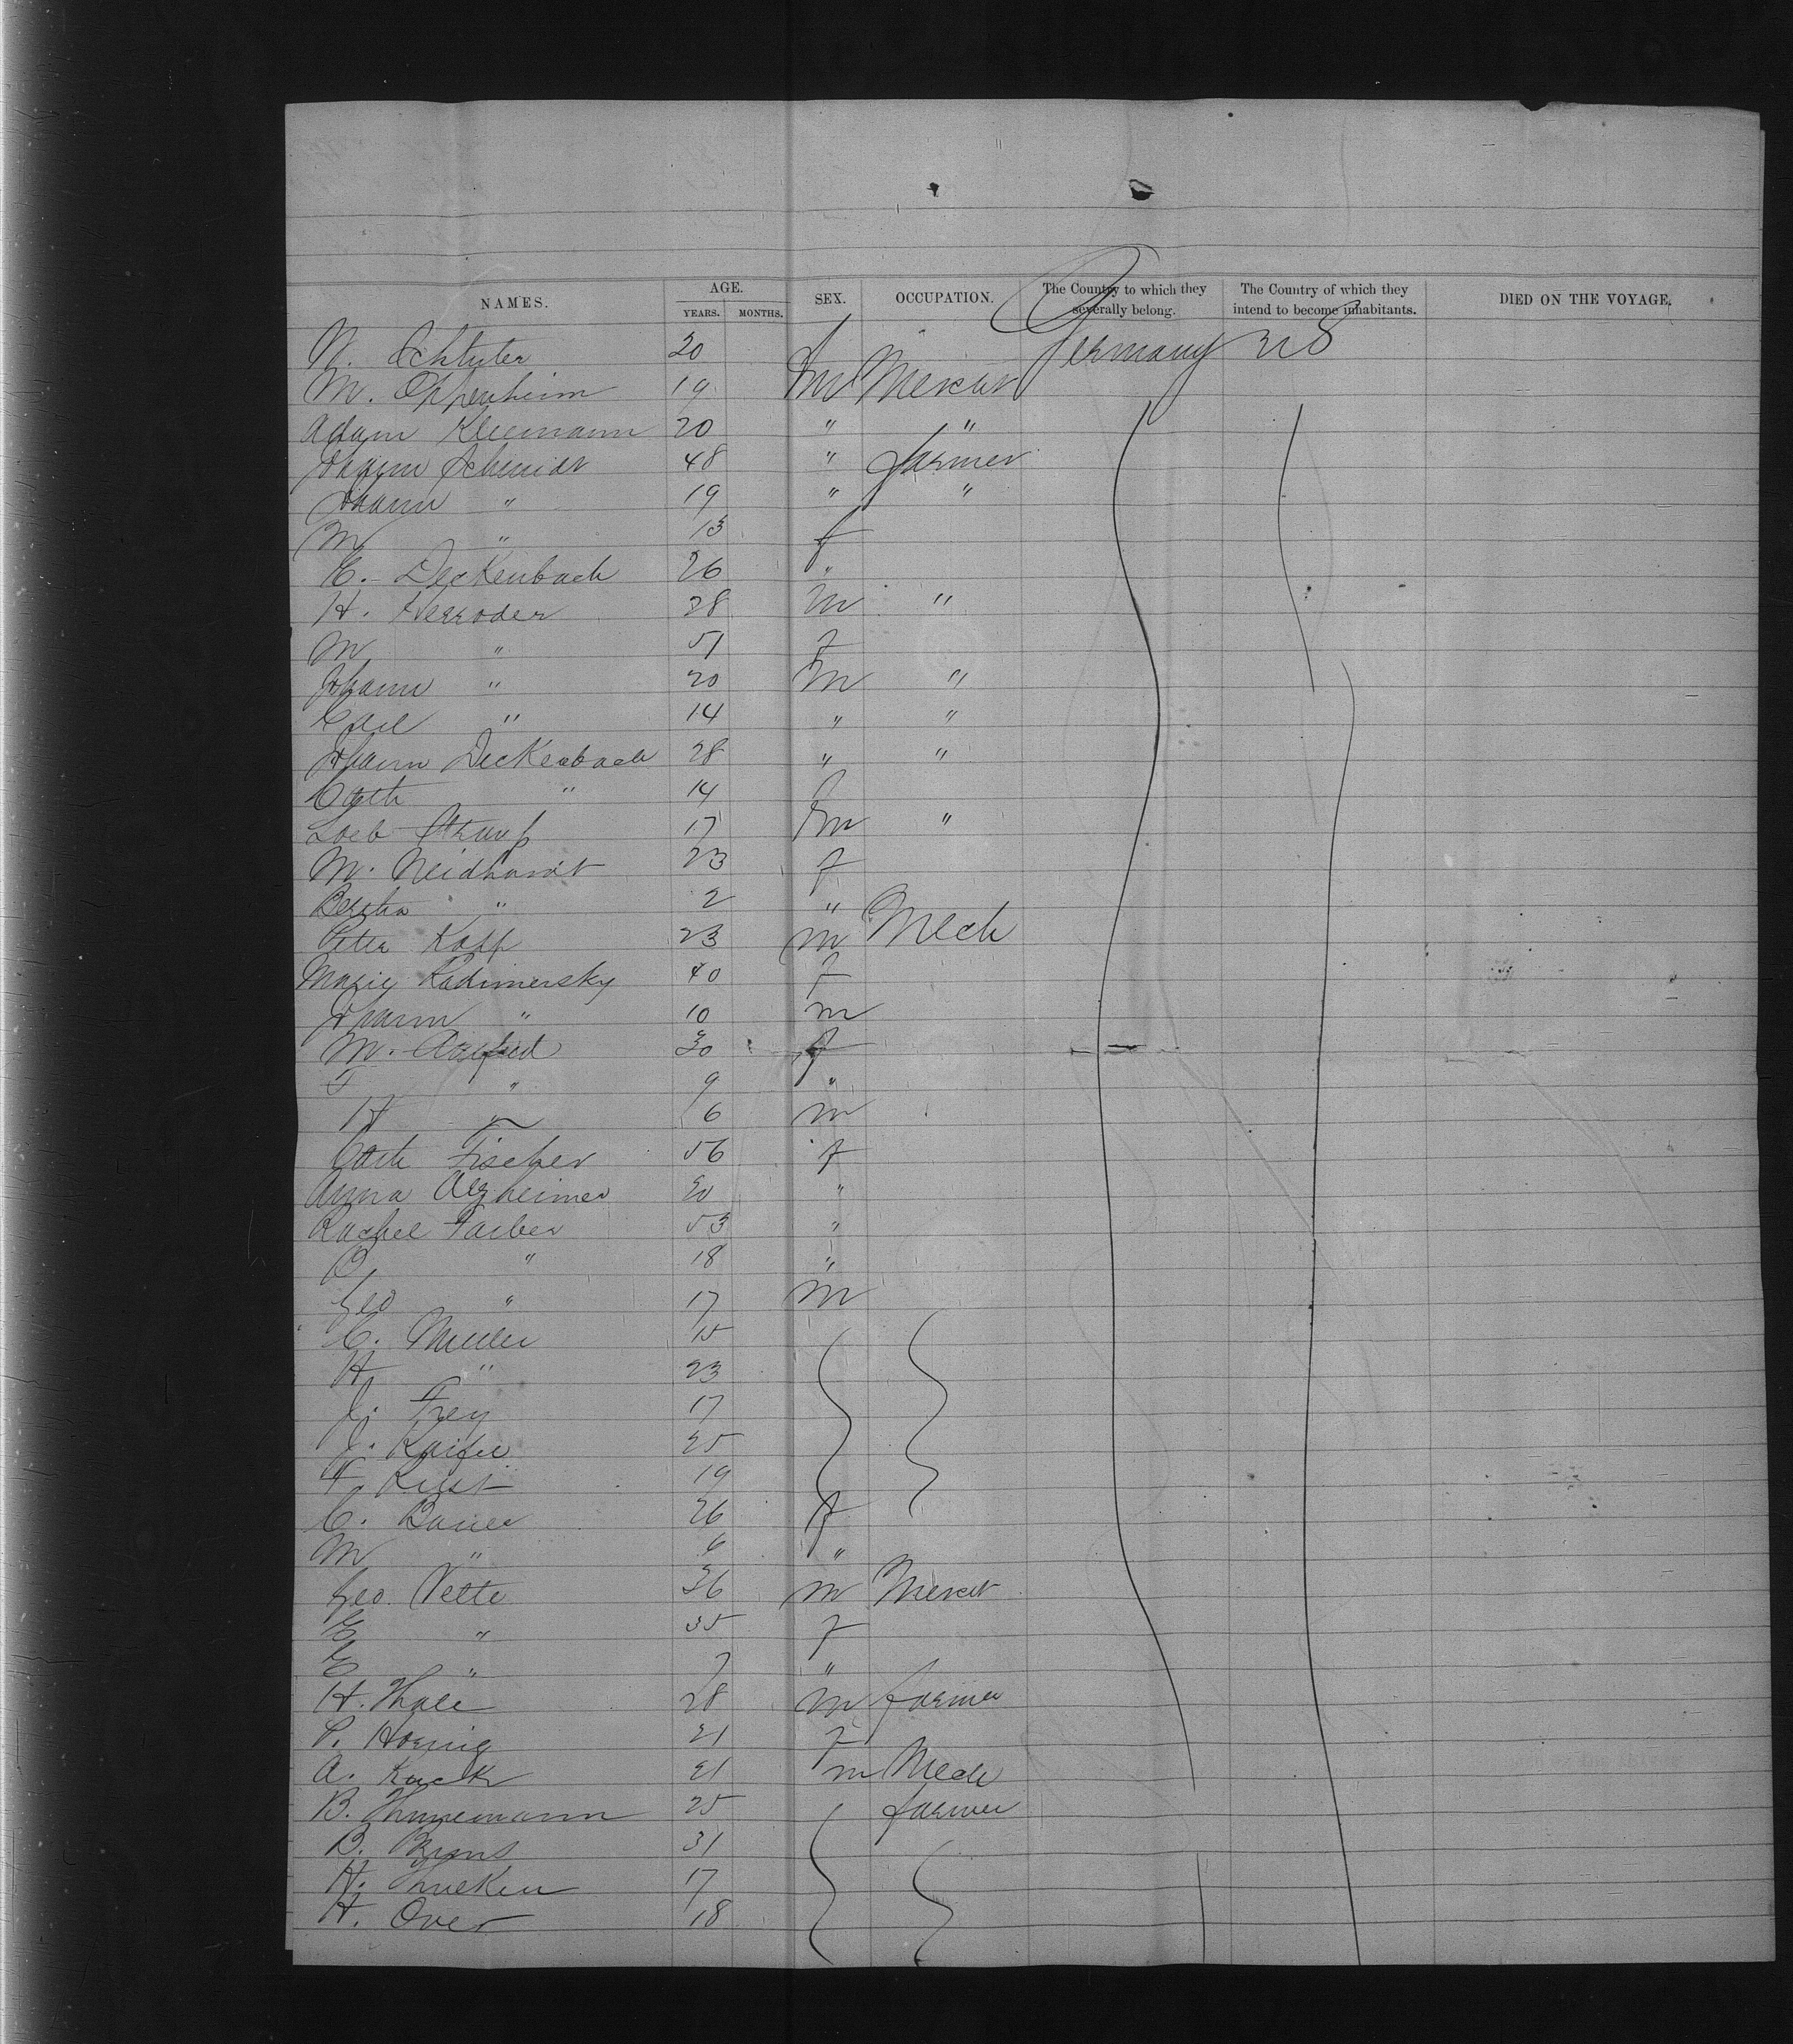 NAMES. AGE. SEX. OCCUPATION. The Country to which they severally belong. The Country of which they intend to become inhabitants. DIED ON THE VOYAGE.
YEARS. MONTHS.
N. Schluter 20 f Germany U S
M. Oppenheim 19 m Mercht
Adam Kleemann 20 " "
Johann Schmidt 48 " farmer
Johann " 19 " "
M " 13 f
C. Deckenbach 26 "
H. 28 m "
M " 51 f
Johann " 20 m "
Carl " 14 " "
Johann Deckenbach 28 " "
Cath " 14 f
Loeb 17 m "
M. Neidhardt 23 f
Bertha " 2 "
Peter Kapp 23 m Mech
Marie Kadimersky 40 f
Johann " 10 m
M. 30 f
F " 9 "
H " 6 m
Cath Fischer 56 f
Anna Alzheimer 20 "
Rachel Farber 53 "
B " 18 "
Geo " 17 m
C. Muller 15
H " 23
J. Frey 17
J. Kaifer 25
F. Kust 19
C. Bauer 26 f
M " 6 "
Geo. Vette 36 m Mercht
E " 35 f
E " 7 "
H. Thale 28 m farmer
P. Hornig 21 f
A. Kuck 21 m Mech
B. 25 farmer
B. Bruns 31
H. 17
H. Over 18